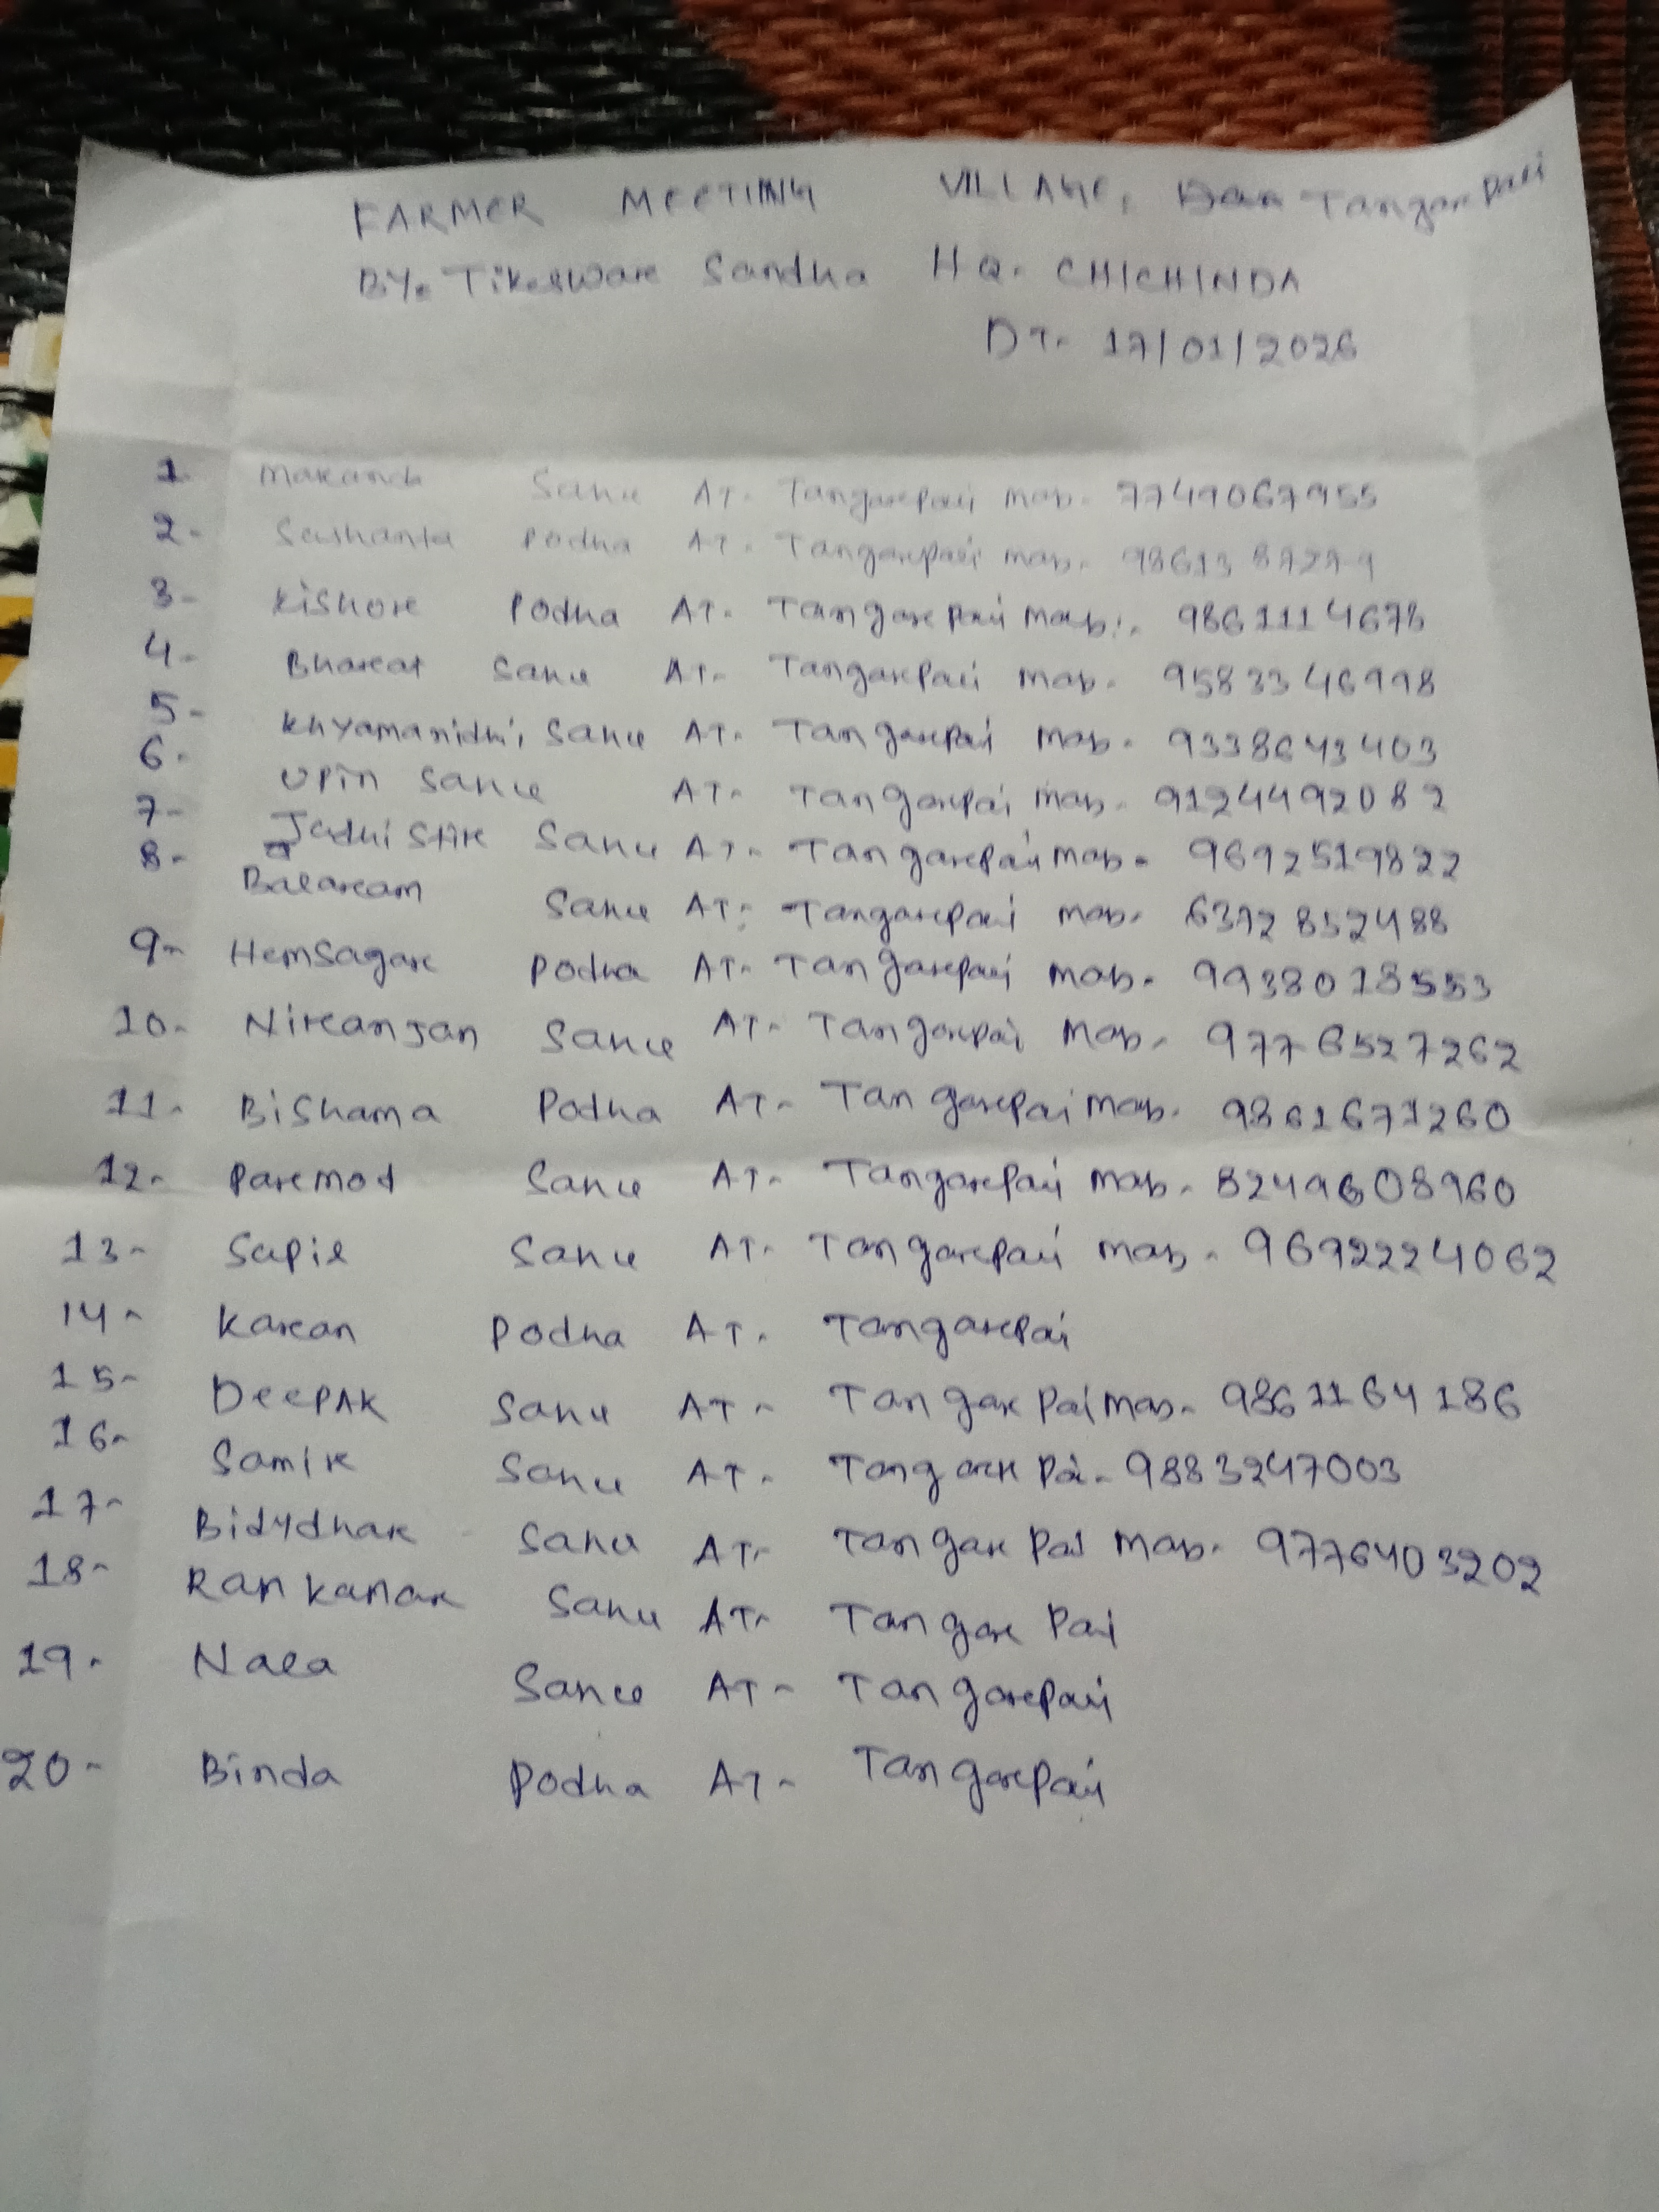 FARMER MEETING VILLAGE, Tangarpali
BY. Tikeswar Sandha HQ. CHICHINDA
DT. 17/01/2026
1. Makanda Sahu AT. Tangarpali Mob. 7749067955
2. Sushanta Podha AT. Tangarpali Mob. 9861387279
3- Kishor Podha AT. Tangarpali Mob. 9861114678
4- Bharat Sahu AT. Tangarpali Mob. 9583346998
5- Khyamanidhi Sahu AT. Tangarpali Mob. 9338643403
6. Upin Sahu AT. Tangarpai Mob. 9124492082
7- Judhistir Sahu AT. Tangarpali Mob. 9692519822
8- Balaram Sahu AT. Tangarpali Mob. 6372852488
9- Hemsagar Podha AT. Tangarpali Mob. 9938018553
10- Niranjan Sahu AT. Tangarpai Mob. 9776527262
11- Bishama Podha AT. Tangarpai Mob. 9861671260
12- Parmod Sahu AT. Tangarpali Mob. 8249608960
13- Sapil Sahu AT. Tangarpali Mob. 9692224062
14- Karan Podha AT. Tangarpai
15- DeePAK Sahu AT- Tangar Pai Mob. 9861164186
16- Samir Sahu AT. Tangar Pai. 9883247003
17- Bidydhar Sahu AT- Tangar Pai Mob. 9776403202
18- Rankanar Sahu AT- Tangar Pai
19. Nala Sahu AT- Tangarpali
20- Binda Podha AT- Tangarpali